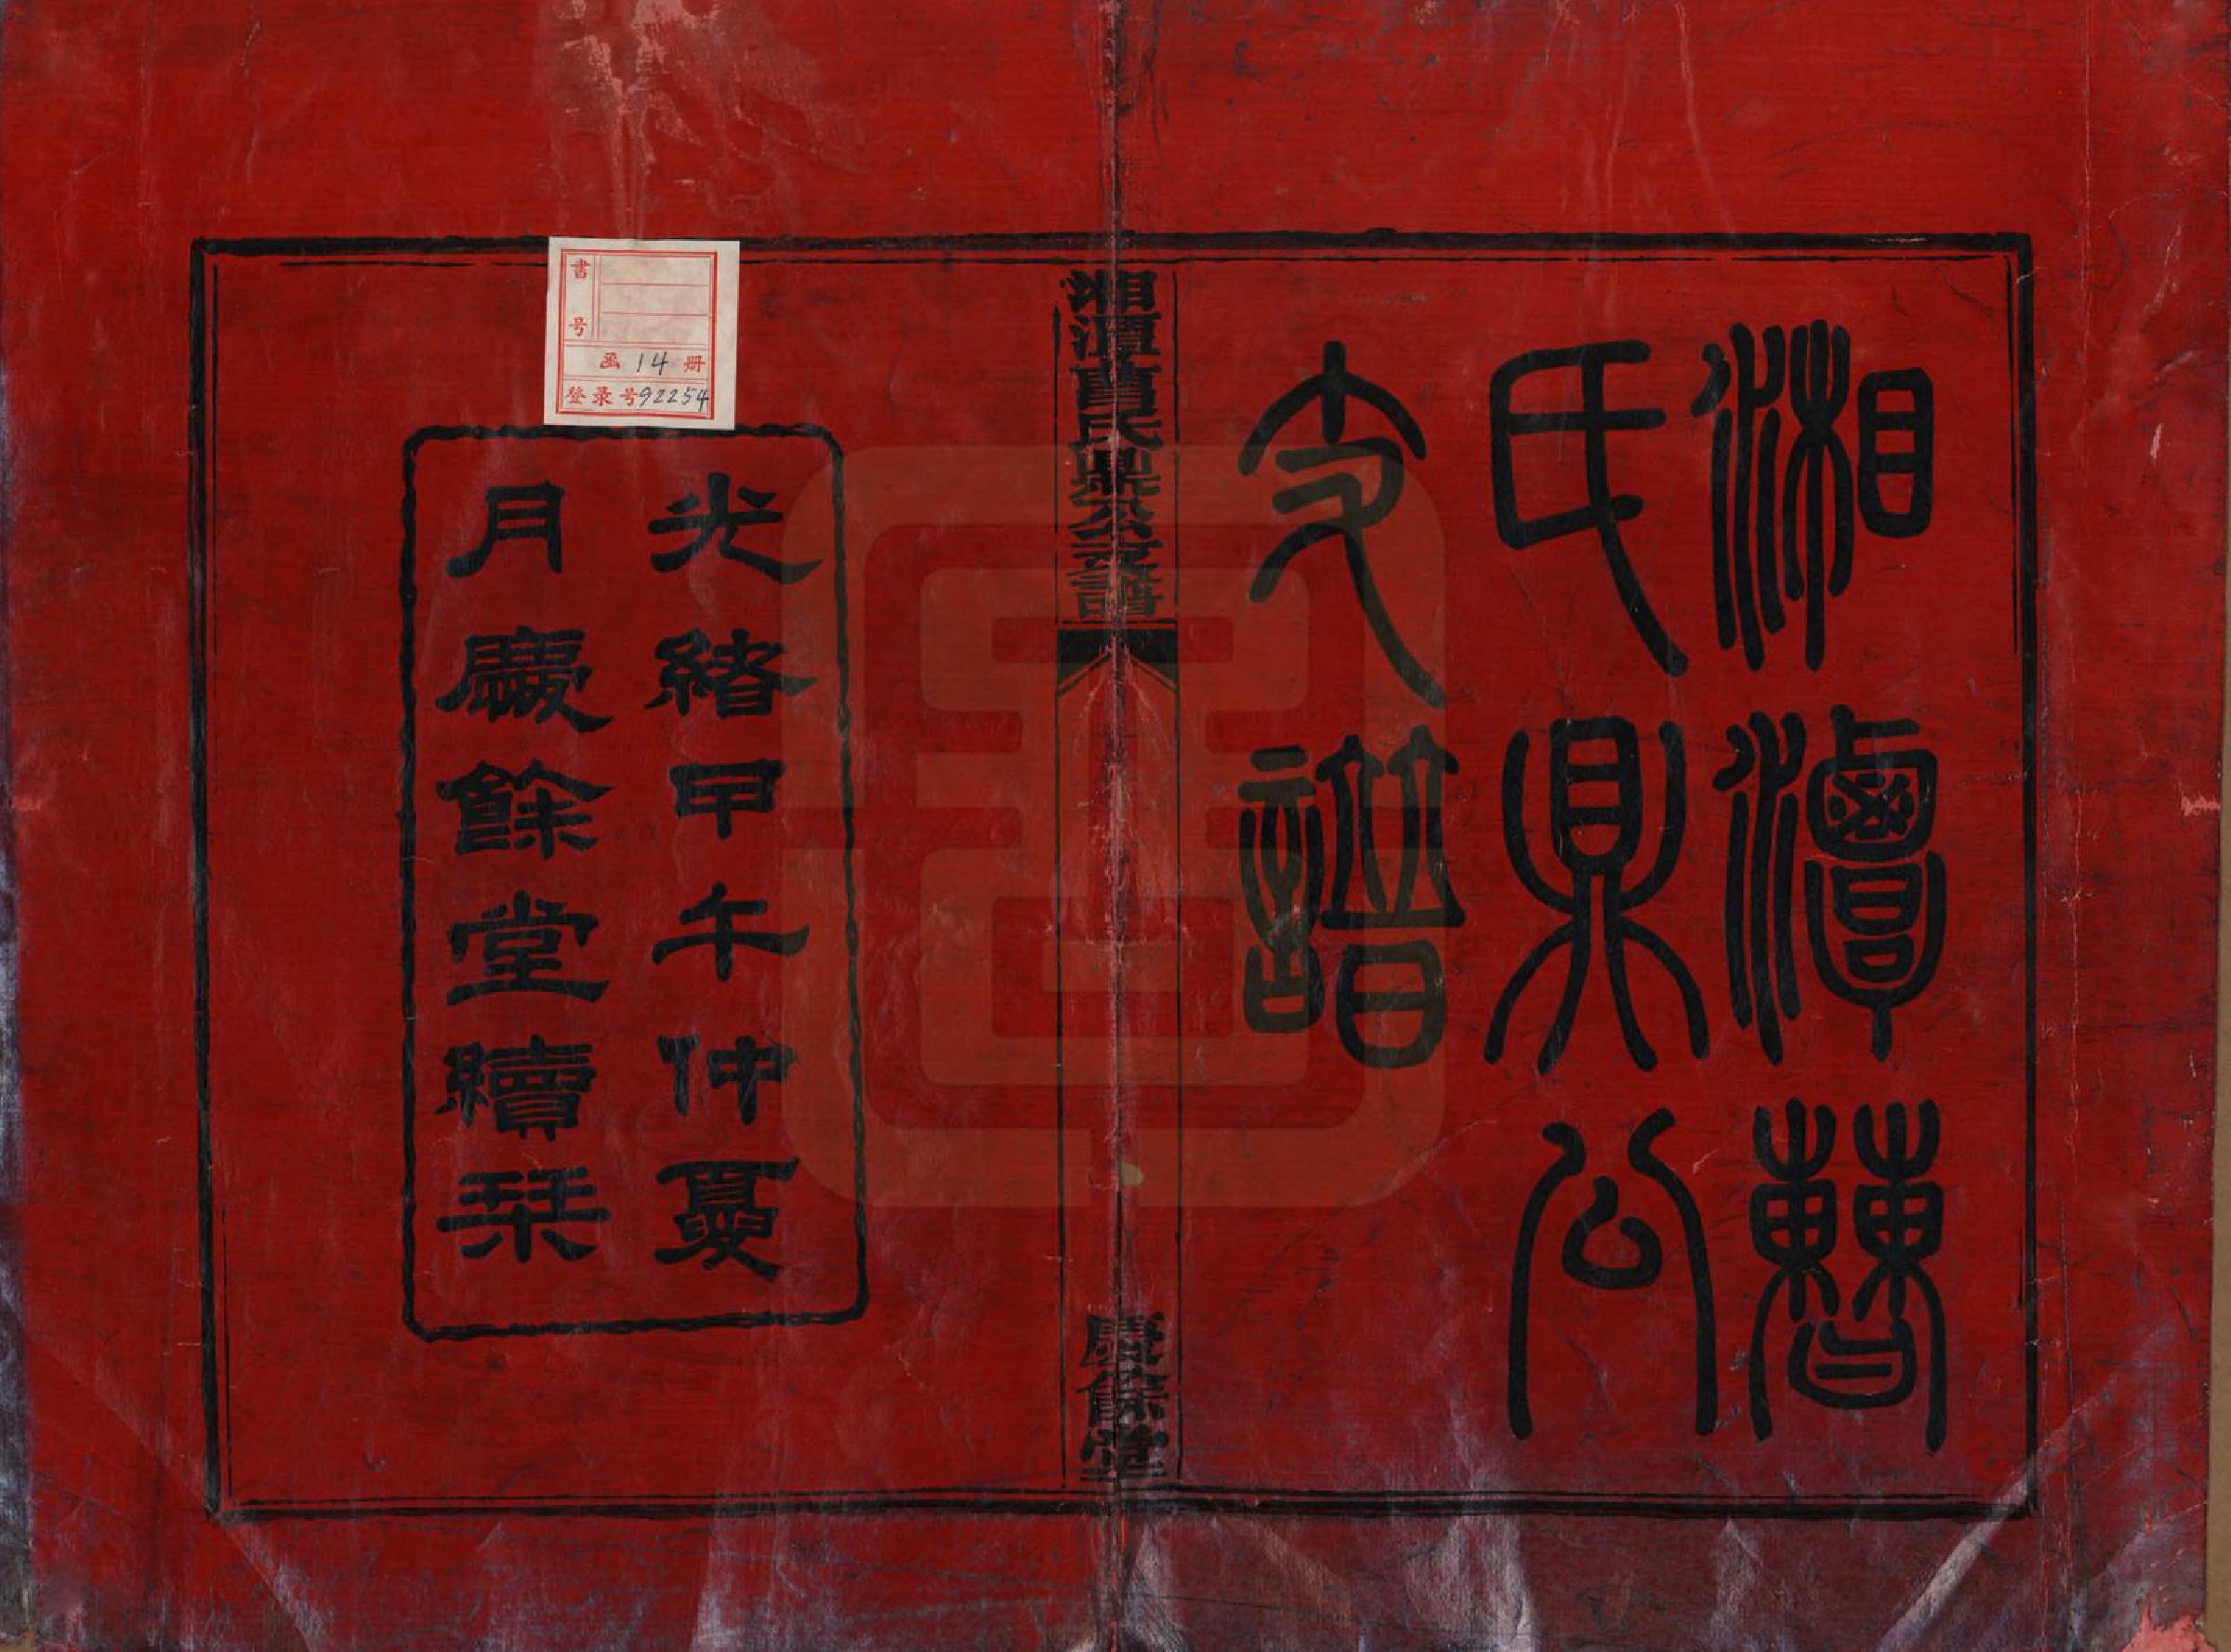 湘潭曹
氏鼎公
支譜
湘潭曹氏鼎公支譜
慶餘堂
光緒甲午仲夏
月慶餘堂續栞
書号
函 14 册
登录号92254